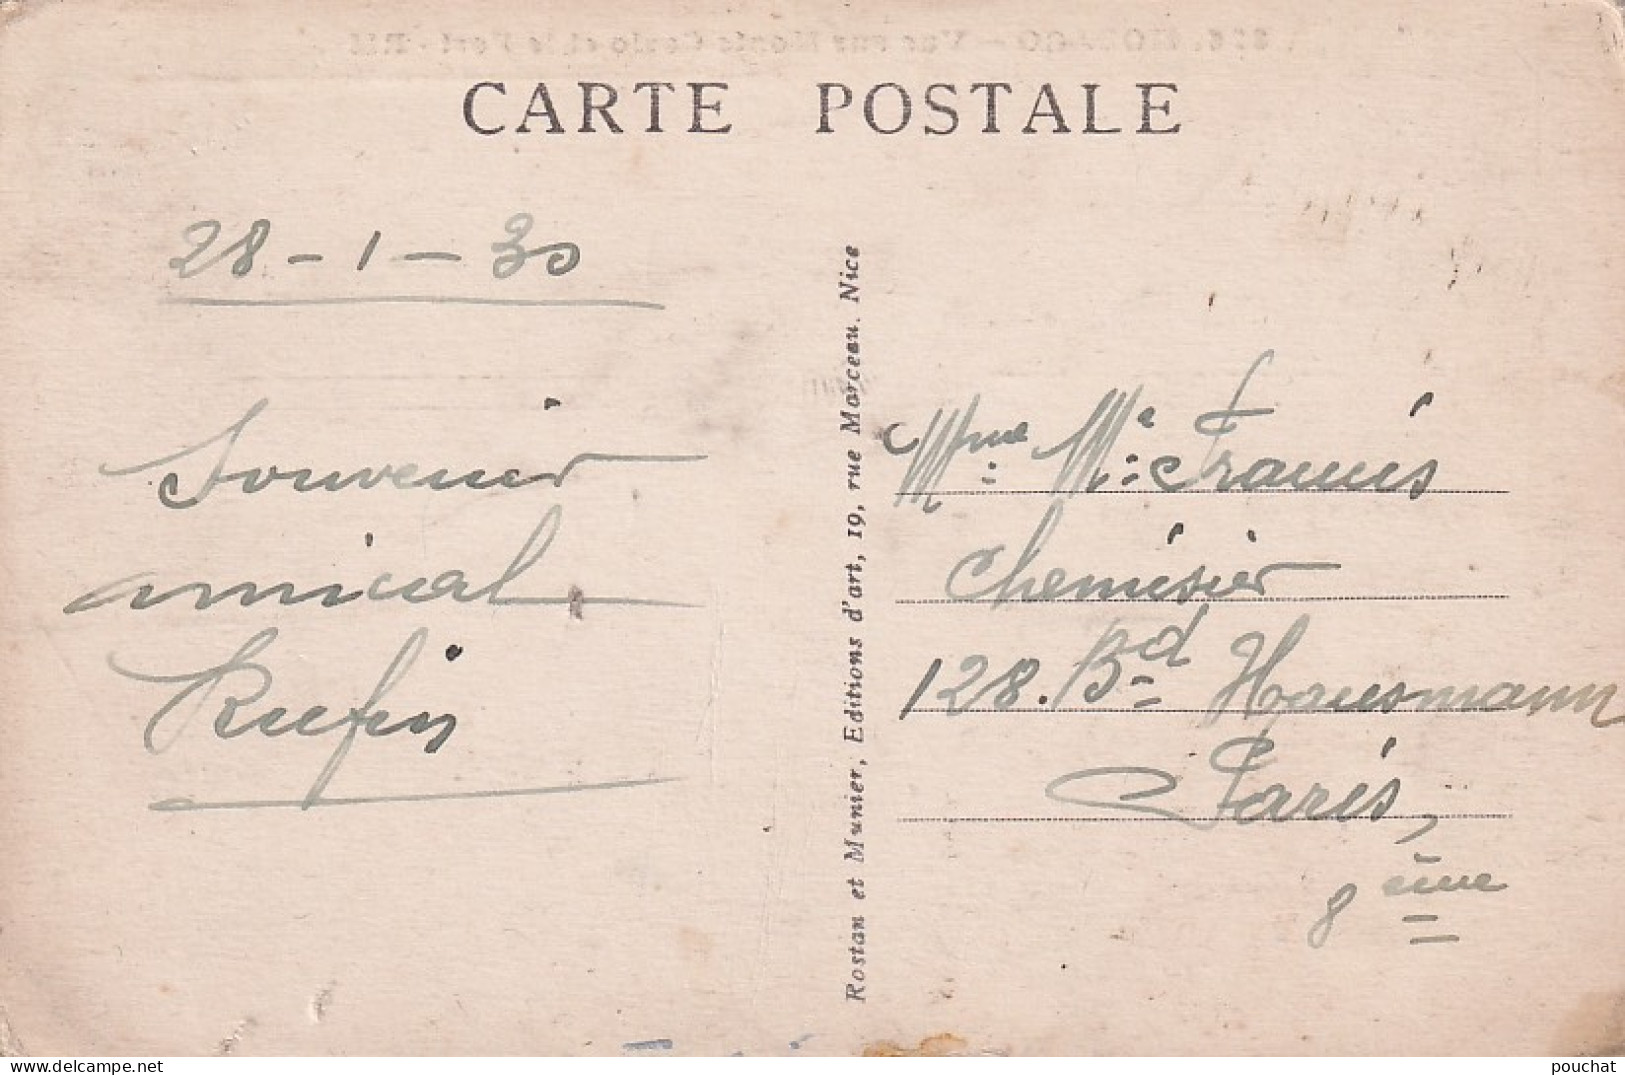 CARTE POSTALE
28-1-30
Souvenir
amical
Rufin
Rostan et Munier, Editions d'art, 19, rue Marceau. Nice
Mme Me Francis
Chemisier
128. Bd Hausmann
Paris,
8ème
delcampe.net
pouchat